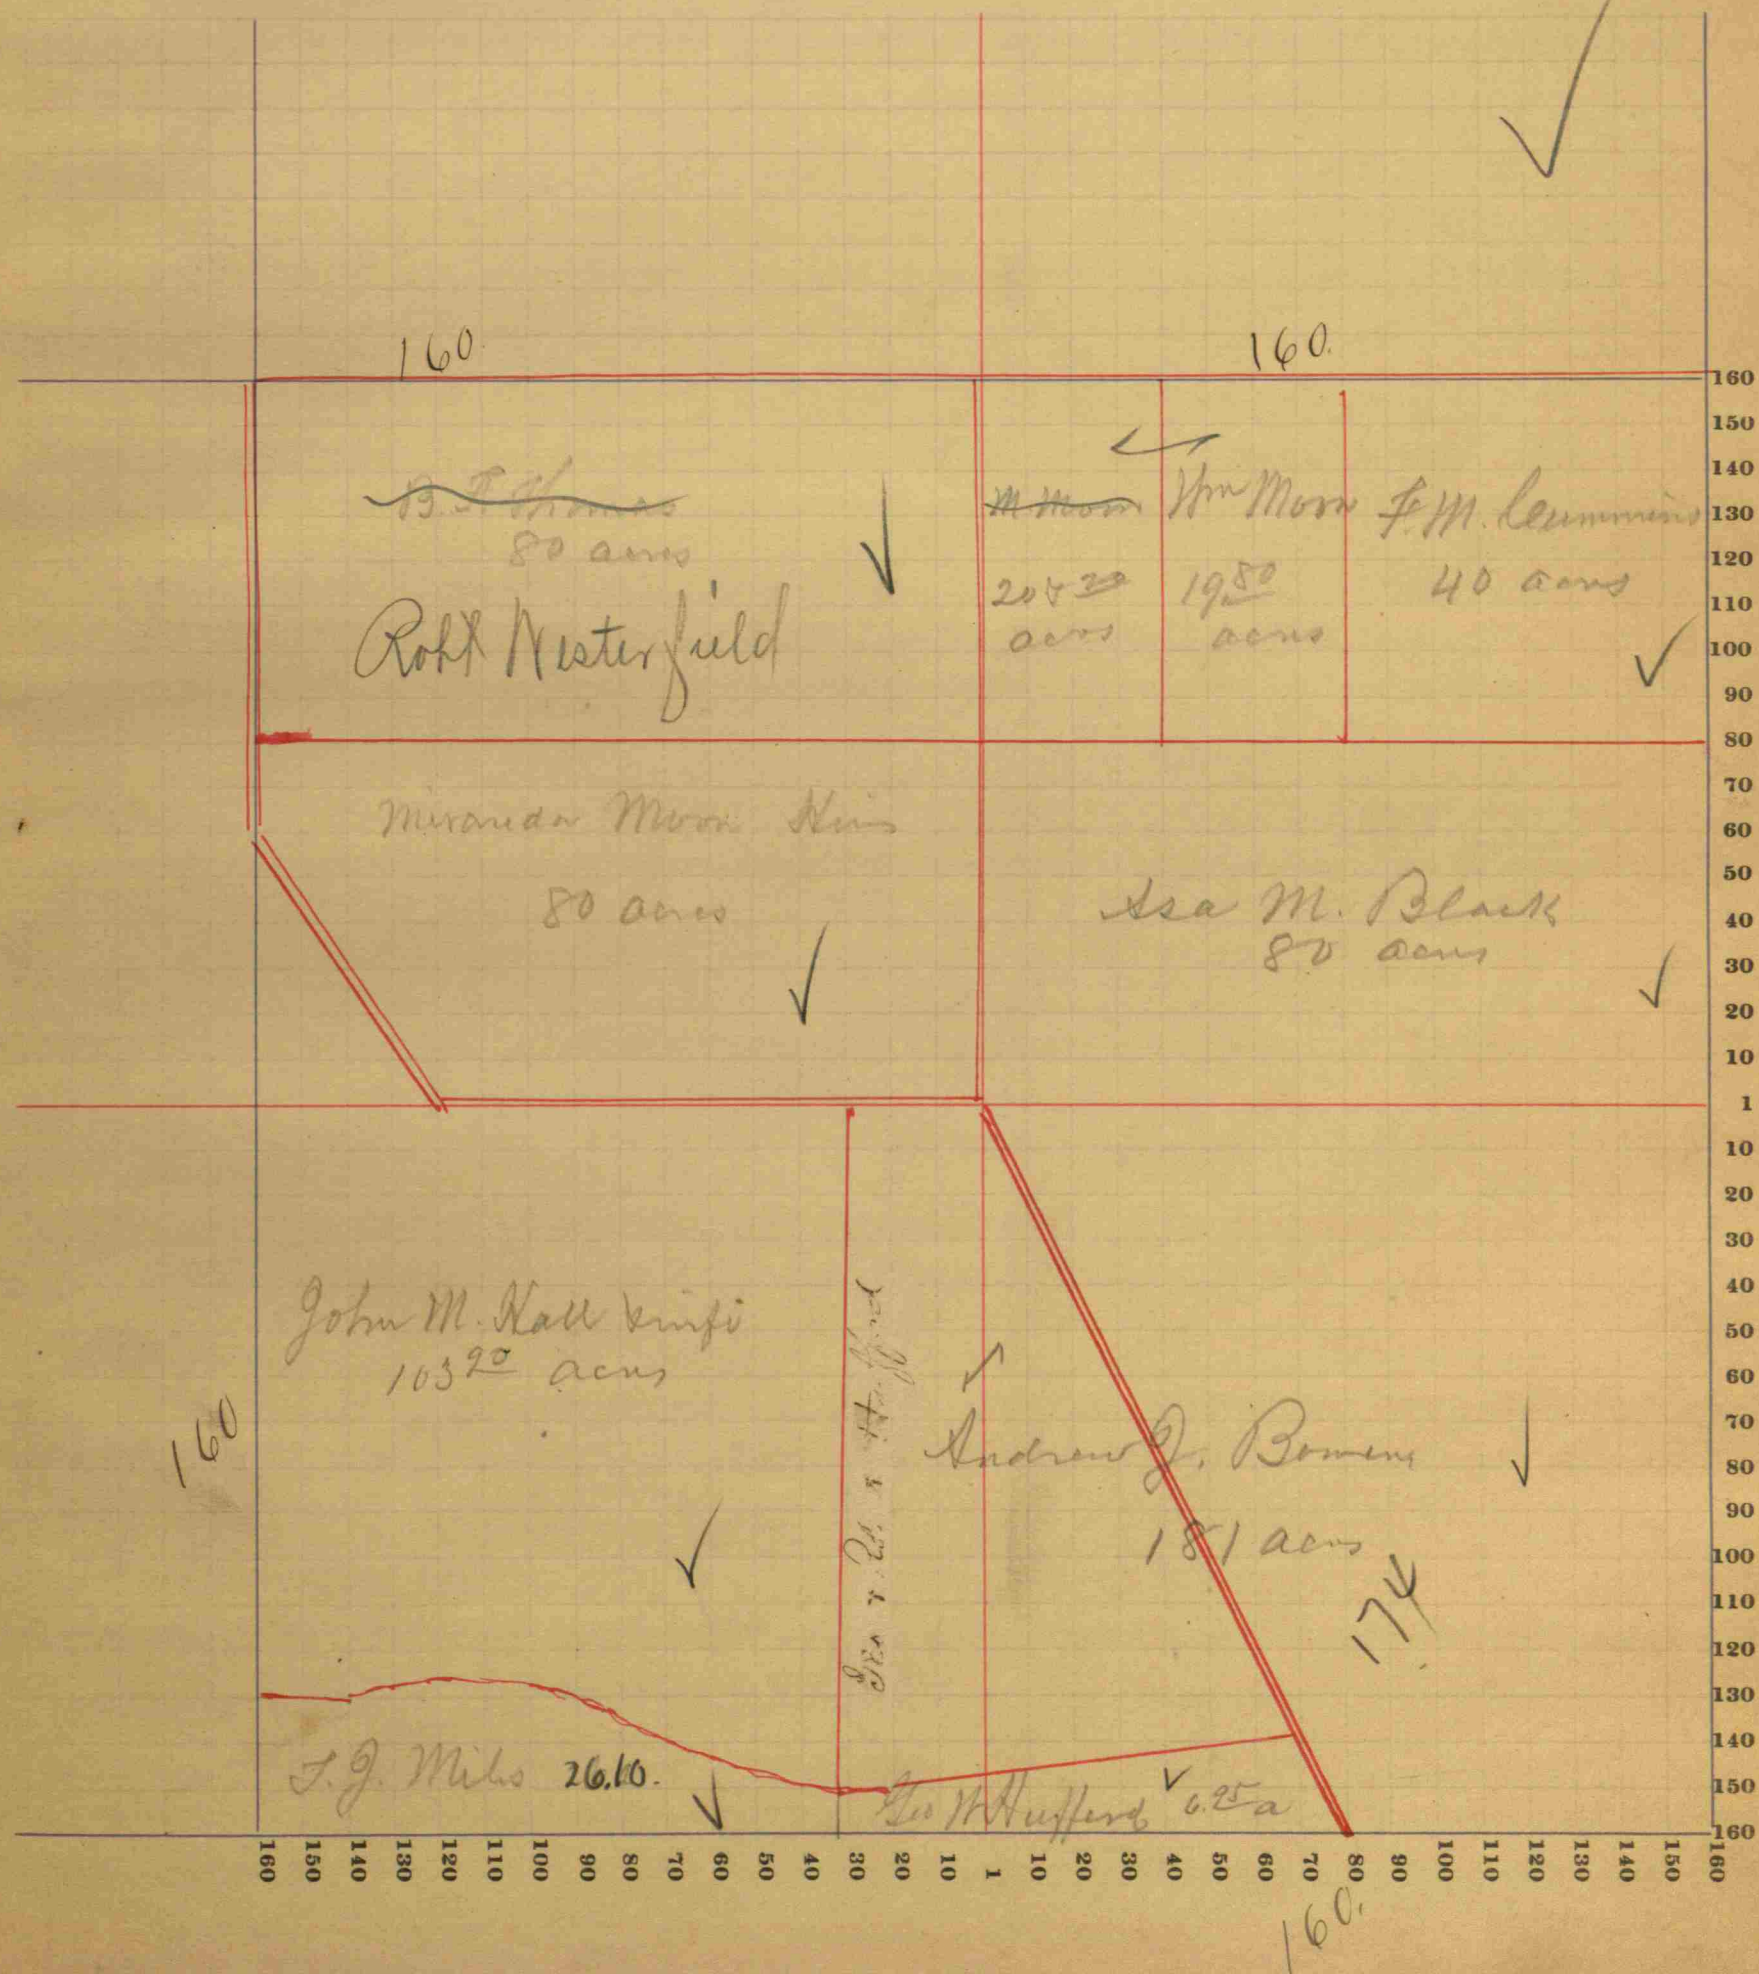 160
160.
B. F. Thomas
80 acres
Robt Westerfield
M Moon
20 & 20
acres
Wm Moon
19 80
acres
F. M. Cummins
40 acres
Miranda Moon
80 acres
Asa M. Black
80 acres
John M. Hall
103 20 acres
160
Andrew J. Bowen
181 acres
174
T. J. Miles 26.10.
Geo W Hufferd 6.25 a
160
150
140
130
120
110
100
90
80
70
60
50
40
30
20
10
1
10
20
30
40
50
60
70
80
90
100
110
120
130
140
150
160
160 150 140 130 120 110 100 90 80 70 60 50 40 30 20 10 1 10 20 30 40 50 60 70 80 90 100 110 120 130 140 150 160
160.